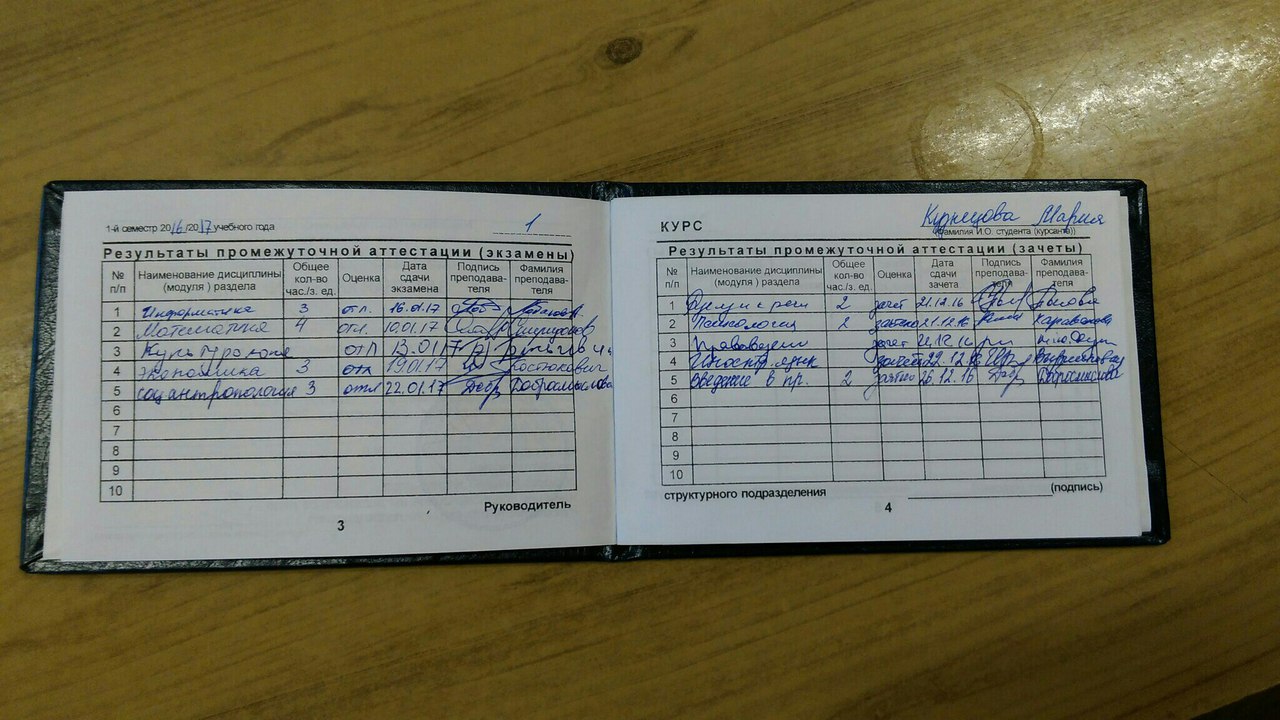 1-й семестр 2016/2017 учебного года 1
Результаты промежуточной аттестации (экзамены)
№ п/п Наименование дисциплины (модуля ) раздела Общее кол-во час./з. ед. Оценка Дата сдачи экзамена Подпись преподава- теля Фамилия преподава- теля
1 Информатика 3 отл. 16.01.17
2 Математика 4 отл. 10.01.17
3 Культурология отл 13.01.17
4 экономика 3 отл 19.01.17 Костюкович
5 соц антропология 3 отл 22.01.17 Добр Добромыслова
6
7
8
9
10
Руководитель
3
КУРС Кузнецова Мария
(фамилия И.О. студента (курсанта))
Результаты промежуточной аттестации (зачеты)
№ п/п Наименование дисциплины (модуля ) раздела Общее кол-во час./з. ед. Оценка Дата сдачи зачета Подпись преподава- теля Фамилия преподава- теля
1 2 зачет 21.12.16
2 Психология 2 зачтено 21.12.16
3 Правоведен
4 Иностр. язык 22.12.16
5 введение в пр. 2 зачтено 26.12.16 Добр Добромыслова
6
7
8
9
10
структурного подразделения (подпись)
4